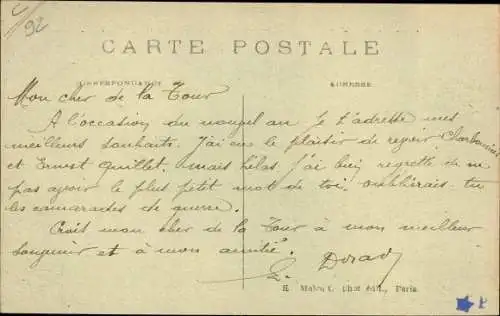 92
CARTE POSTALE
CORRESPONDANCE
ADRESSE
Mon cher de la Tour
A l'occasion du nouvel an je t'adresse mes
meilleurs souhaits. J'ai eu le plaisir de revoir Charbonnier
et Ernest Quillet. mais hélas j'ai bien regretté de ne
pas avoir le plus petit mot de toi. oublierais-tu
les camarades de guerre.
Crois mon cher de la Tour à mon meilleur
souvenir et à mon amitié.
E.
phot édit., Paris.